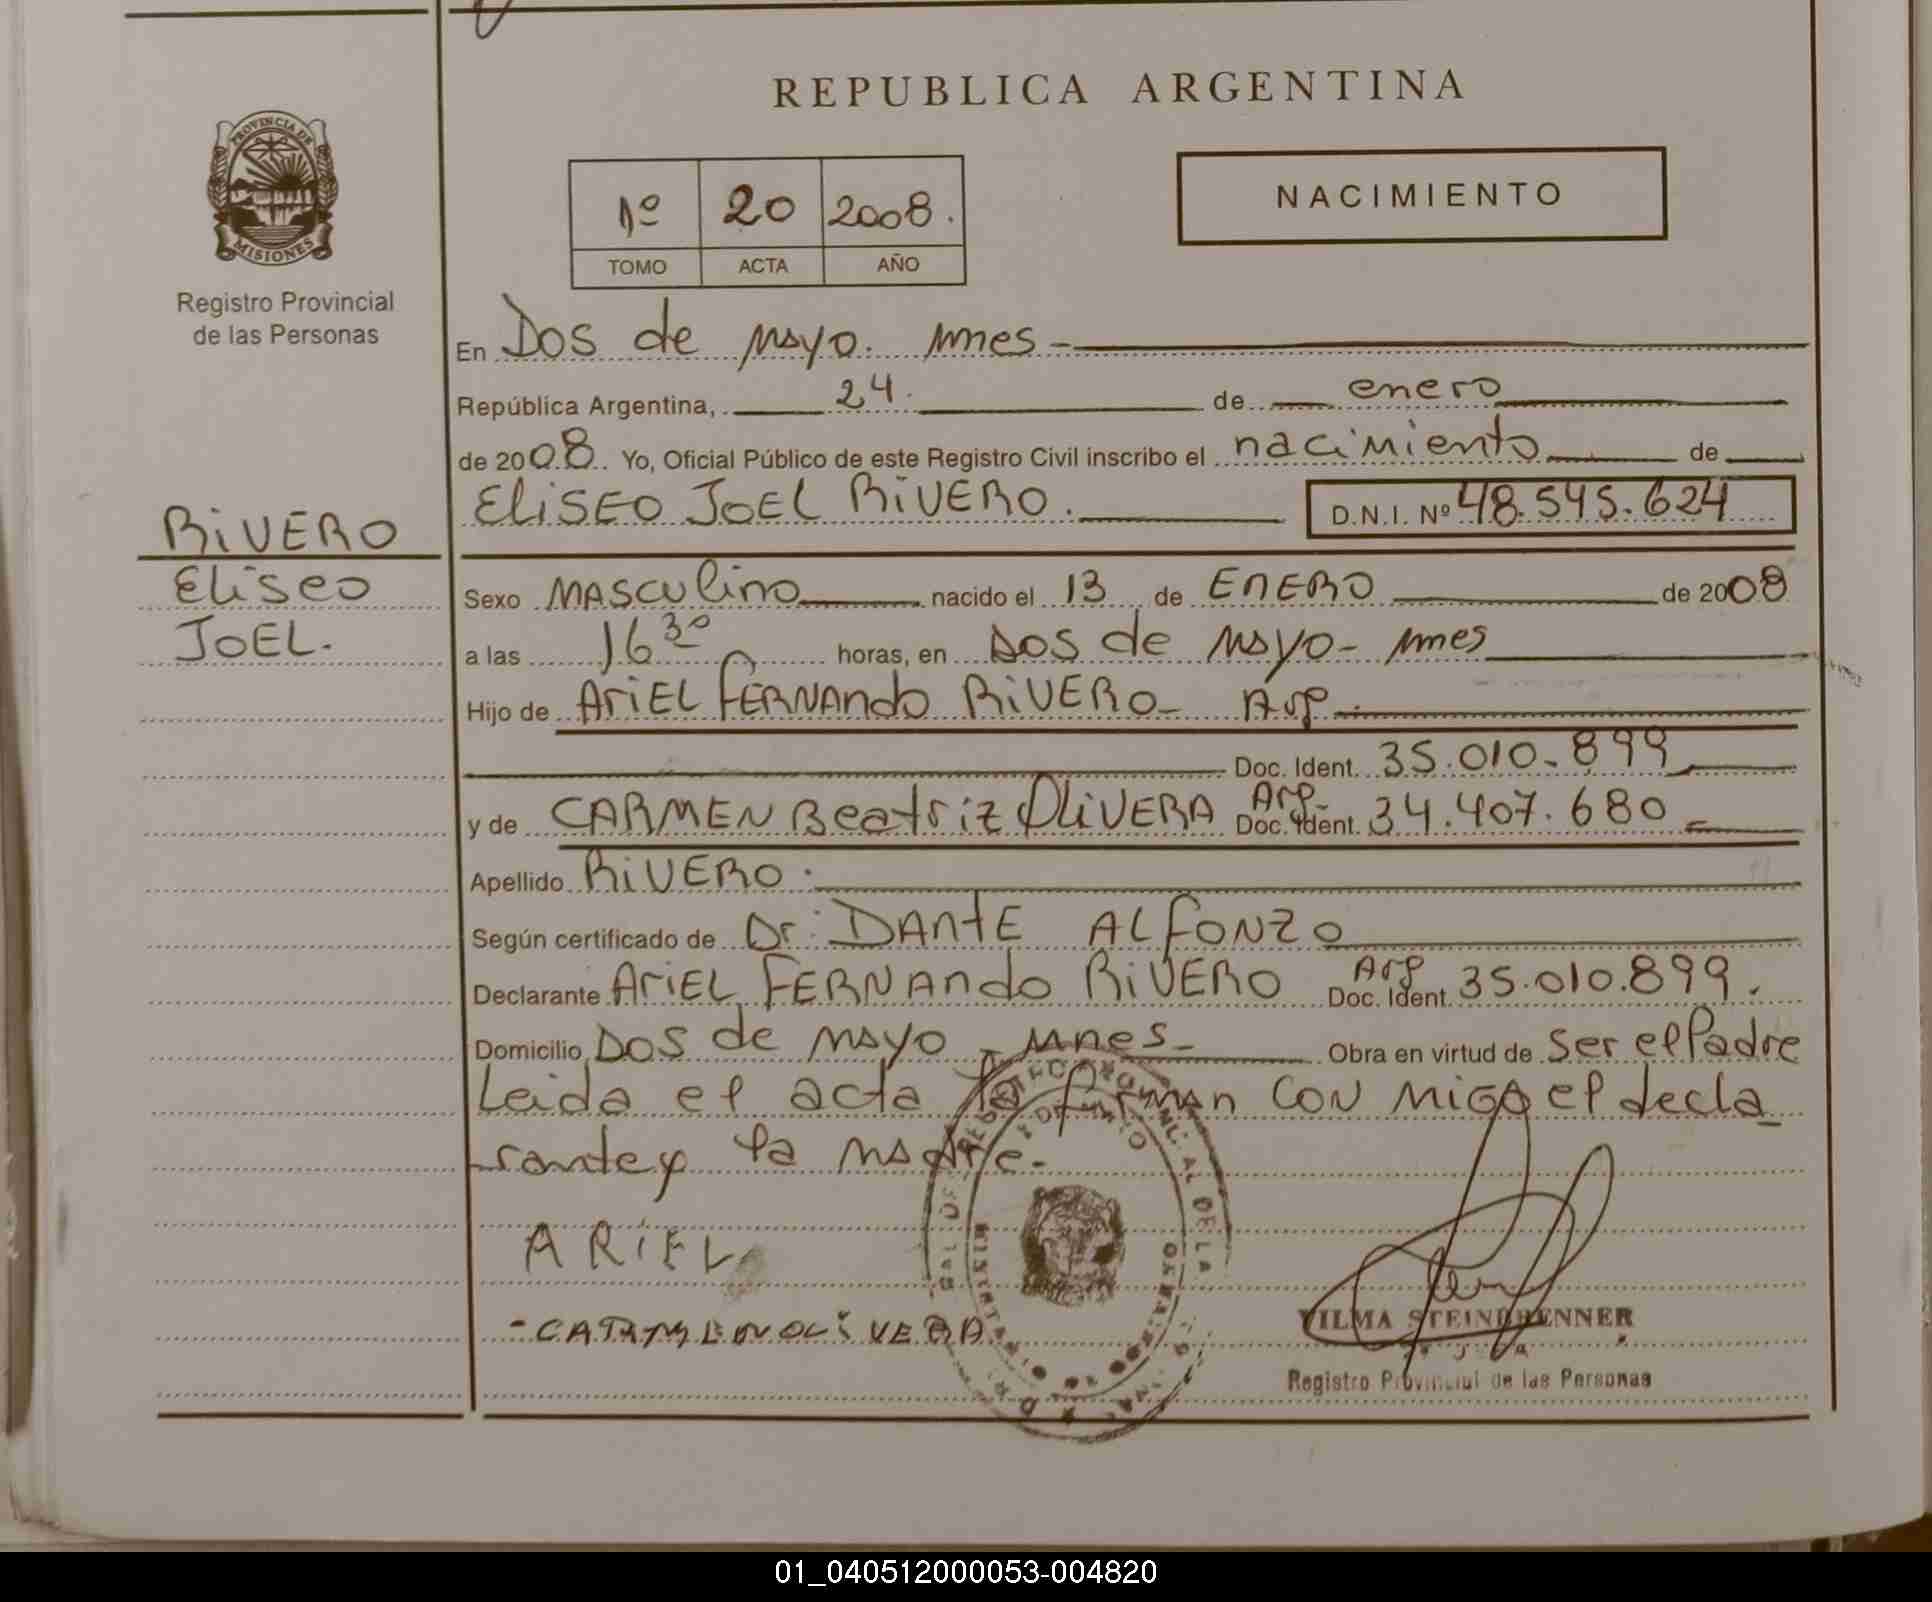 REPUBLICA ARGENTINA
PROVINCIA DE
MISIONES
Registro Provincial
de las Personas
1º 20 2008.
TOMO ACTA AÑO
NACIMIENTO
En Dos de Mayo. Mnes -
República Argentina, 24. de enero
de 2008. Yo, Oficial Público de este Registro Civil inscribo el nacimiento de
ELISEO JOEL RIVERO. D.N.I. Nº 48.545.624
RIVERO
Eliseo
JOEL.
Sexo MASCULino nacido el 13 de ENERO de 2008
a las 16 30 horas, en Dos de Mayo - Mnes
Hijo de ARIEL FERNANdo RIVERO - Arg.
Doc. Ident. 35.010.899
y de CARMEN Beatriz OLIVERA Arg. Doc. Ident. 34.407.680
Apellido RIVERO.
Según certificado de Dr: DANTE ALFONZO
Declarante ARIEL FERNANdo RIVERO Arg Doc. Ident. 35.010.899.
Domicilio Dos de Mayo - Mnes - Obra en virtud de Ser el Padre
Leida el acta la firman CON MIGO el decla
rante y la Madre.
ARIEL
- CATHMENOLIVERA
VILMA STEINBRENNER
Registro Provincial de las Personas
01_040512000053-004820